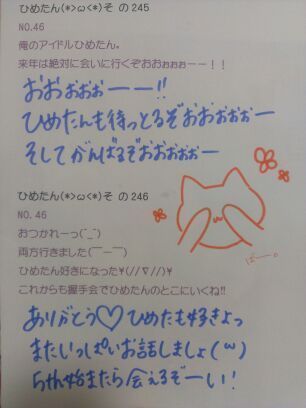 ひめたん(*>ω<*)そ の245
NO.46
俺のアイドルひめたん。
来年は絶対に会いに行くぞおおぉぉぉーー！！
おおぉぉぉぉーー!!
ひめたんも待っとるぞおおぉぉぉー
そしてがんばるぞおおぉぉぉー
ひめたん(*>ω<*)そ の246
NO.46
おつかれーっ(ˆ_ˆ)
両方行きました(￣ー￣)
ひめたん好きになった¥(//∇//)¥
これからも握手会でひめたんのとこにいくね!!
ばーん。
ありがとう♡ひめたも好きよっ
またいっぱいお話しましょ(ω)
始またら会えるぞーい!